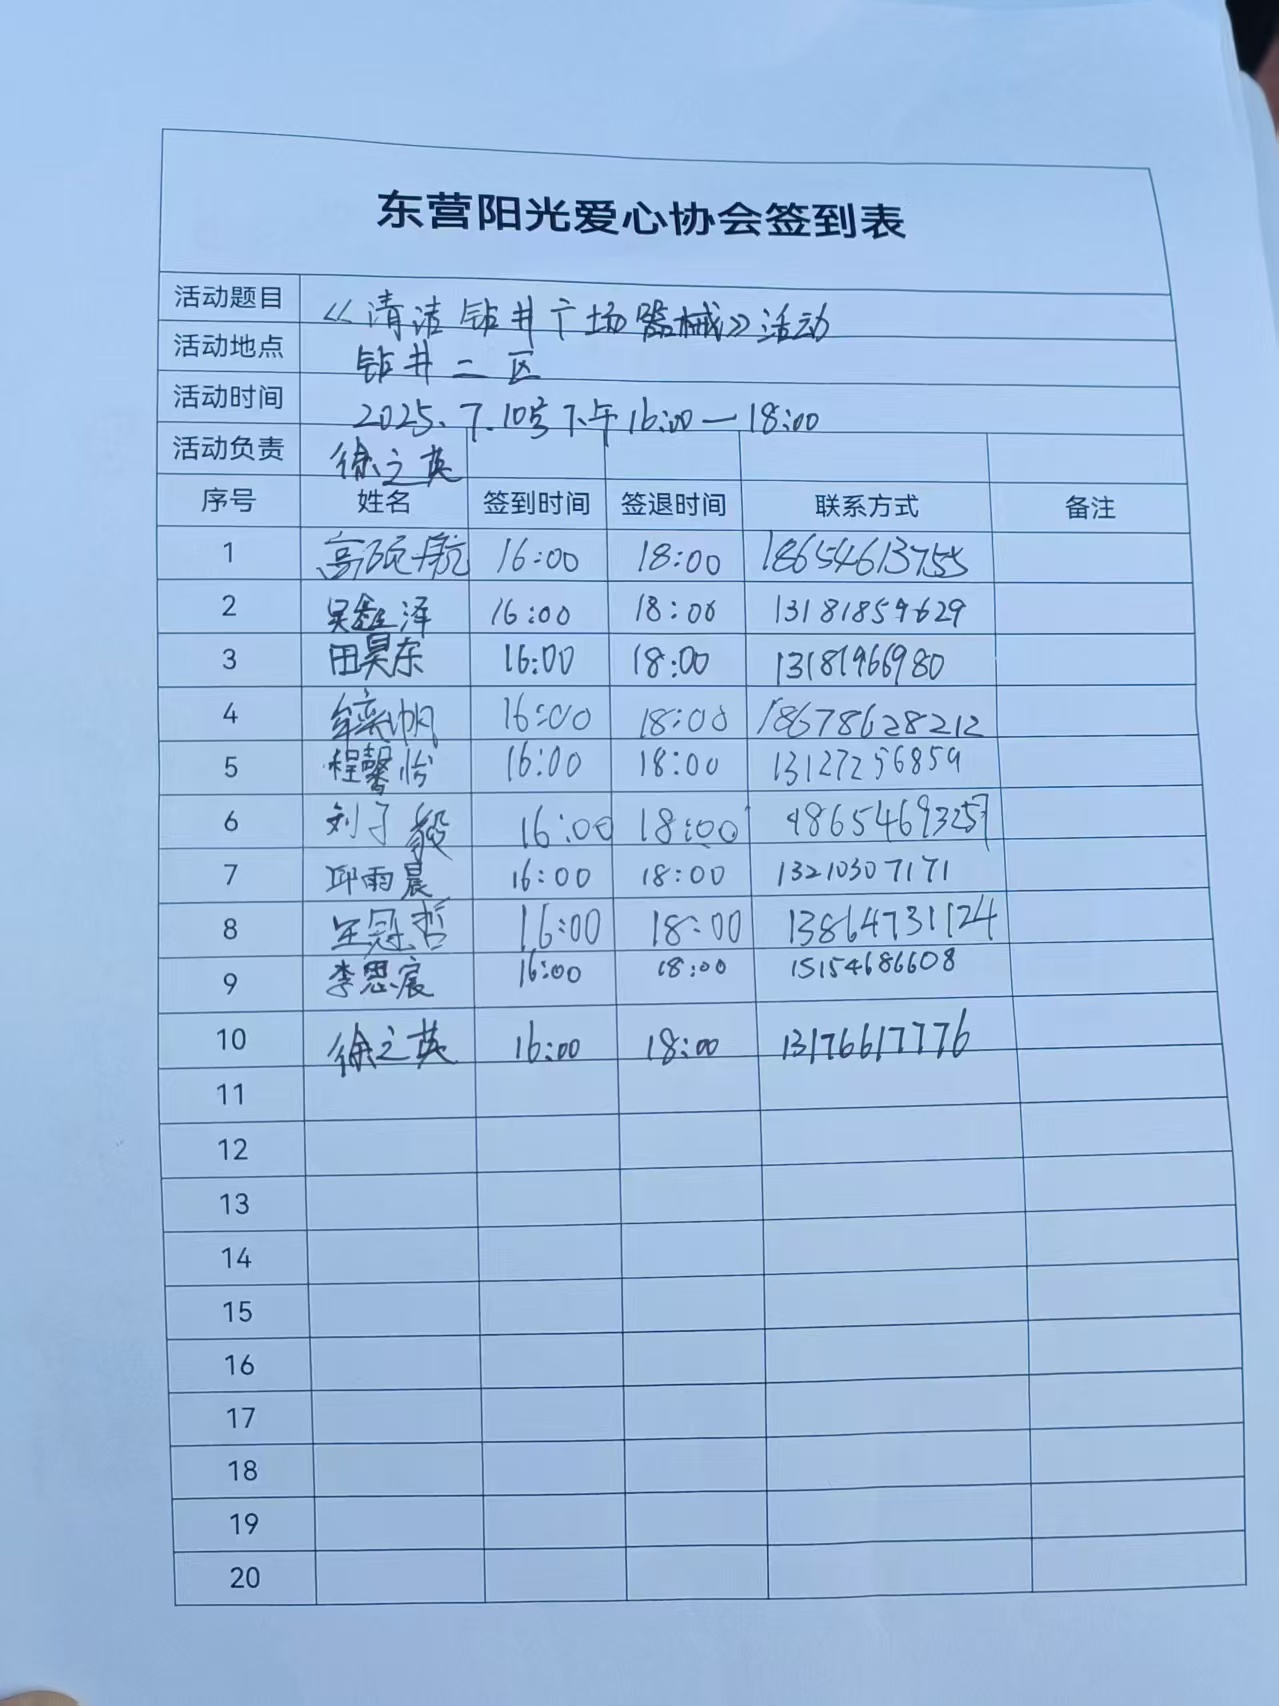 东营阳光爱心协会签到表
活动题目 《清洁钻井广场器械》活动
活动地点 钻井二区
活动时间 2025.7.10号下午16:00—18:00
活动负责 徐之英
序号 姓名 签到时间 签退时间 联系方式 备注
1 高硕航 16:00 18:00 18654613755
2 吴鑫泽 16:00 18:00 13181859629
3 田昊东 16:00 18:00 13181966980
4 16:00 18:00 18678628212
5 程馨怡 16:00 18:00 13127256859
6 刘子毅 16:00 18:00 18654693257
7 邱雨晨 16:00 18:00 13210307171
8 王冠哲 16:00 18:00 13864731124
9 李思宸 16:00 18:00 15154686608
10 徐之英 16:00 18:00 13176617776
11
12
13
14
15
16
17
18
19
20